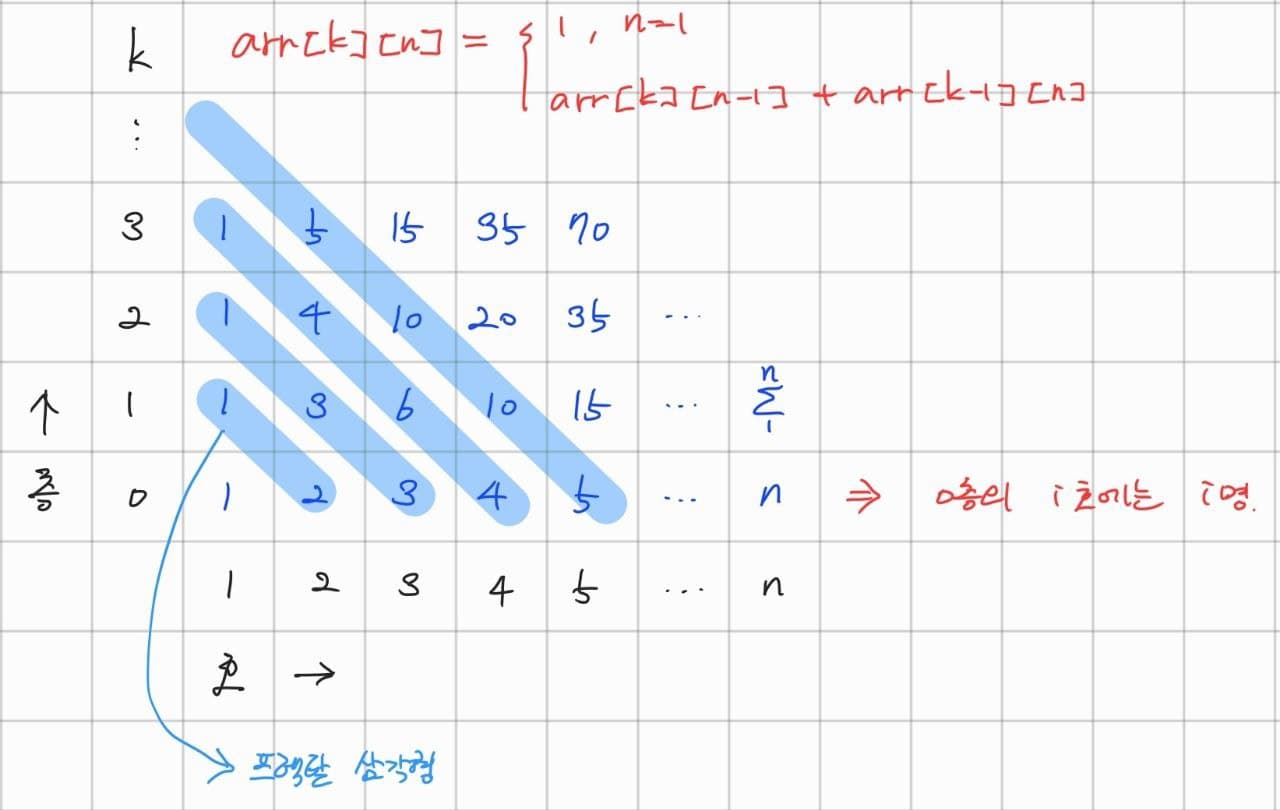 k arr[k][n] = { 1, n=1
arr[k][n-1] + arr[k-1][n]
⋮
3 1 5 15 35 70
2 1 4 10 20 35 ...
↑ 1 1 3 6 10 15 ... n∑1
층 0 1 2 3 4 5 ... n ⇒ 0층의 i호에는 i명.
1 2 3 4 5 ... n
호 →
프랙탈 삼각형